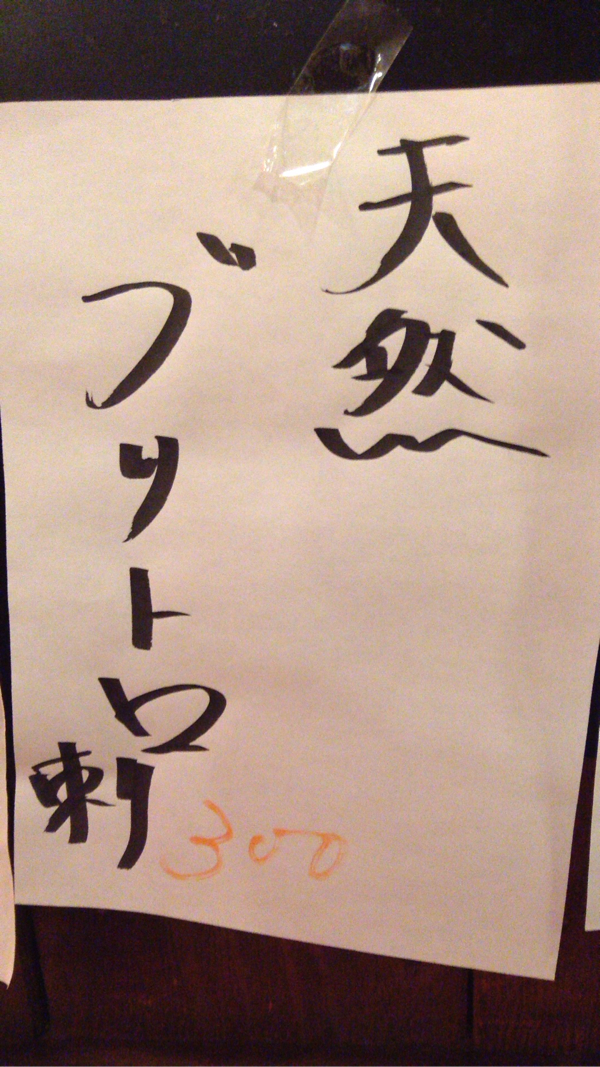 天然
ブリトロ刺
300